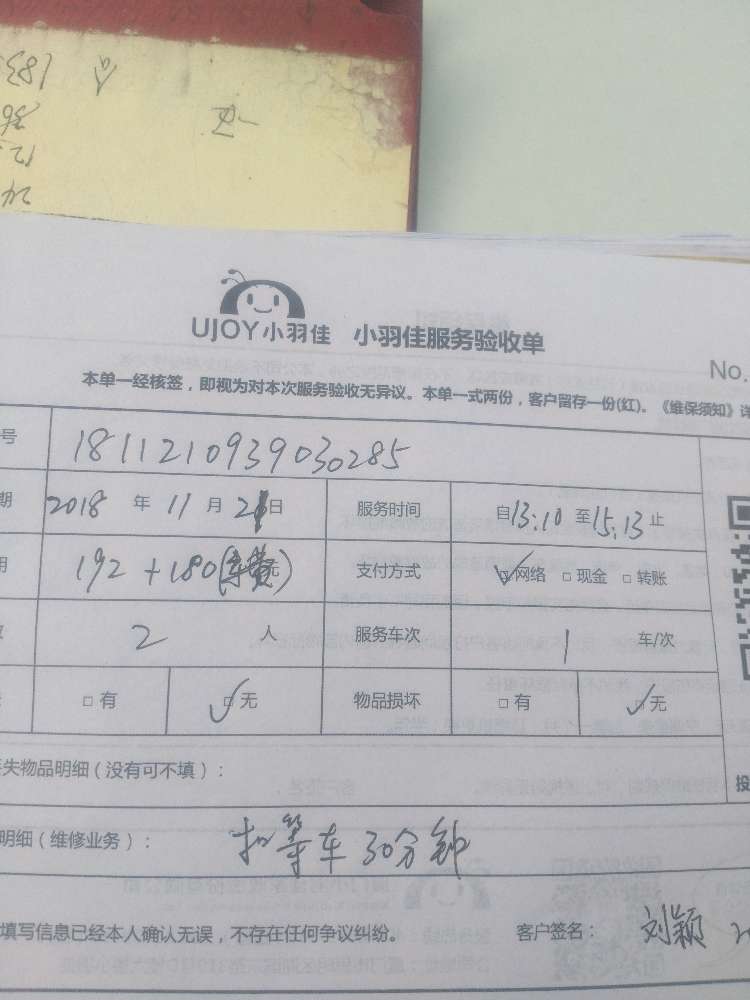 183
36
UJOY小羽佳 小羽佳服务验收单
No.
本单一经核签，即视为对本次服务验收无异议。本单一式两份，客户留存一份(红)。《维保须知》详
号 1811210939030285
期 2018 年 11 月 21 日 服务时间 自 13:10 至 15:13 止
用 192 + 180(车费) 元 支付方式 ☑ 网络 □ 现金 □ 转账
数 2 人 服务车次 1 车/次
□ 有 ☑ 无 物品损坏 □ 有 ☑ 无
丢失物品明细（没有可不填）：
投
明细（维修业务）： 扣等车30分钟
填写信息已经本人确认无误，不存在任何争议纠纷。 客户签名： 刘颖 20